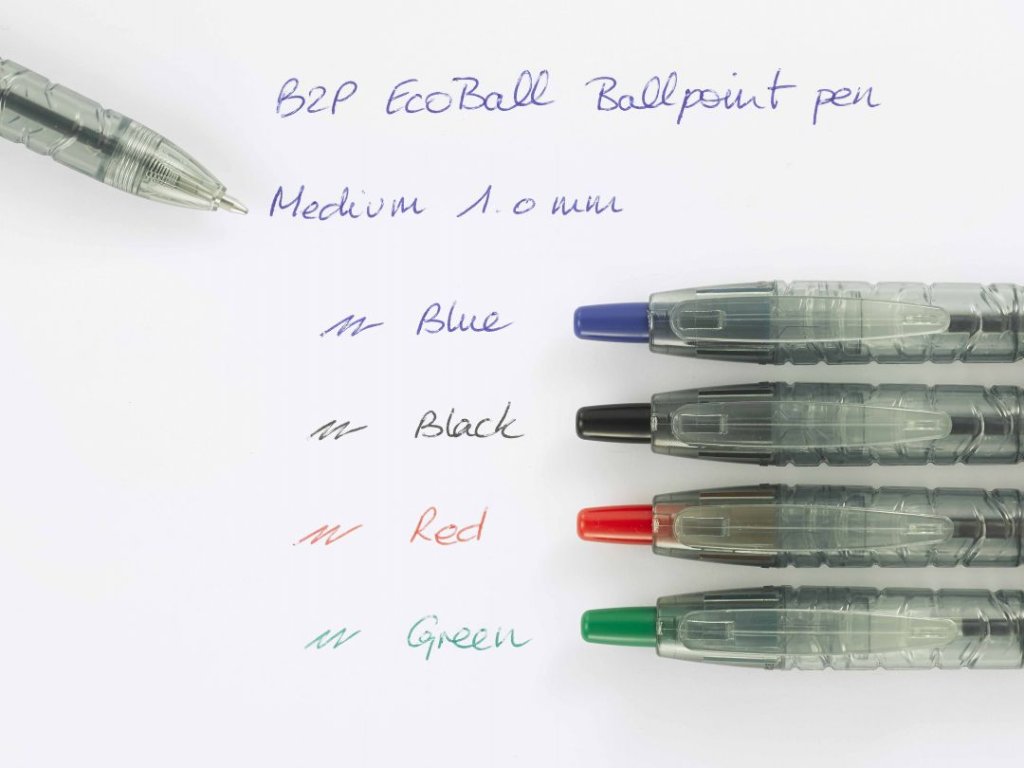 B2P EcoBall Ballpoint pen
Medium 1.0 mm
Blue
Black
Red
Green